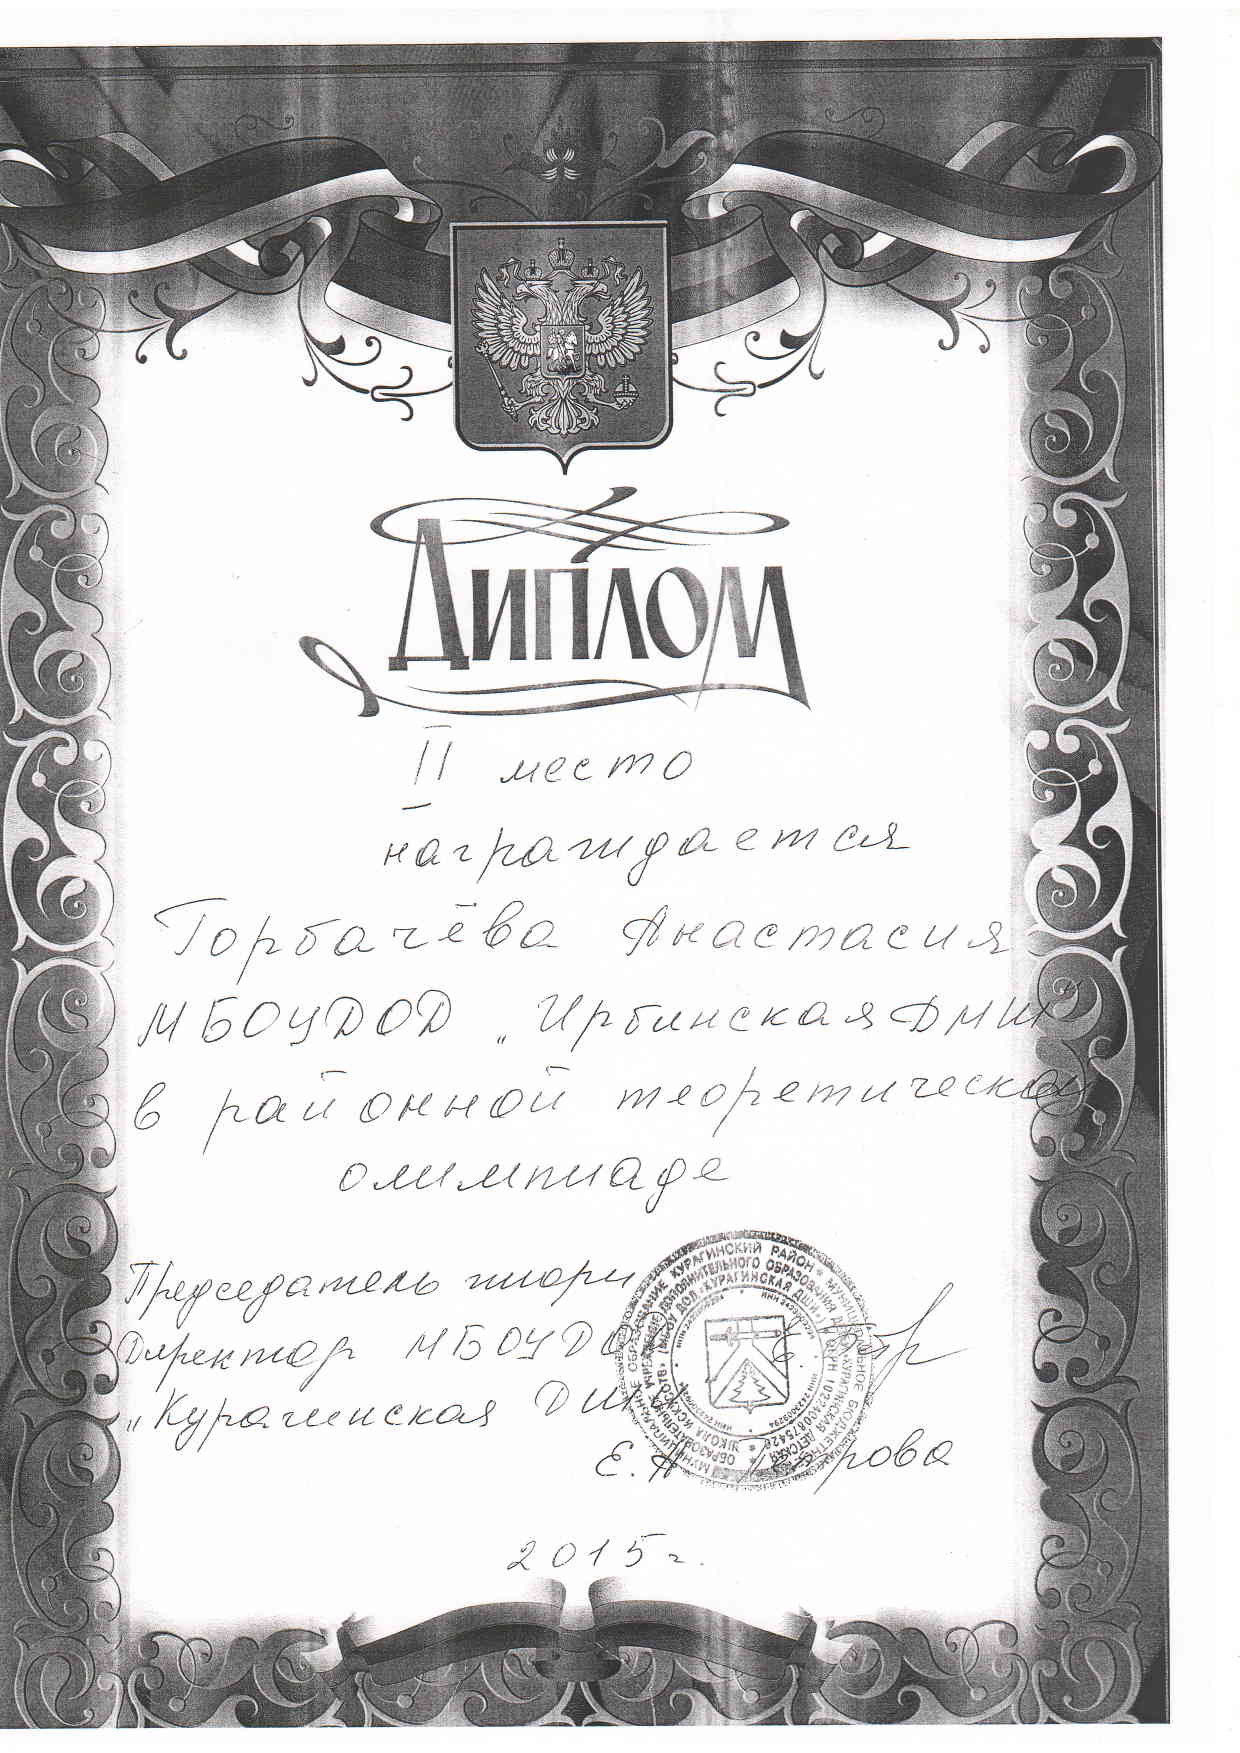 ДИПЛОМ
II место
награждается
Горбачёва Анастасия
МБОУДОД „Ирбинская ДМШ"
в районной теоретической
олимпиаде
Председатель жюри
Директор МБОУДОД
„Курагинская ДШИ
Е.Н.
2015 г.
МУНИЦИПАЛЬНОЕ ОБРАЗОВАНИЕ КУРАГИНСКИЙ РАЙОН * МУНИЦИПАЛЬНОЕ БЮДЖЕТНОЕ
ДОПОЛНИТЕЛЬНОГО ОБРАЗОВАНИЯ ДЕТЕЙ «КУРАГИНСКАЯ ДЕТСКАЯ ШКОЛА ИСКУССТВ»
(МБОУ ДОД «КУРАГИНСКАЯ ДШИ») ОГРН 1032400875426